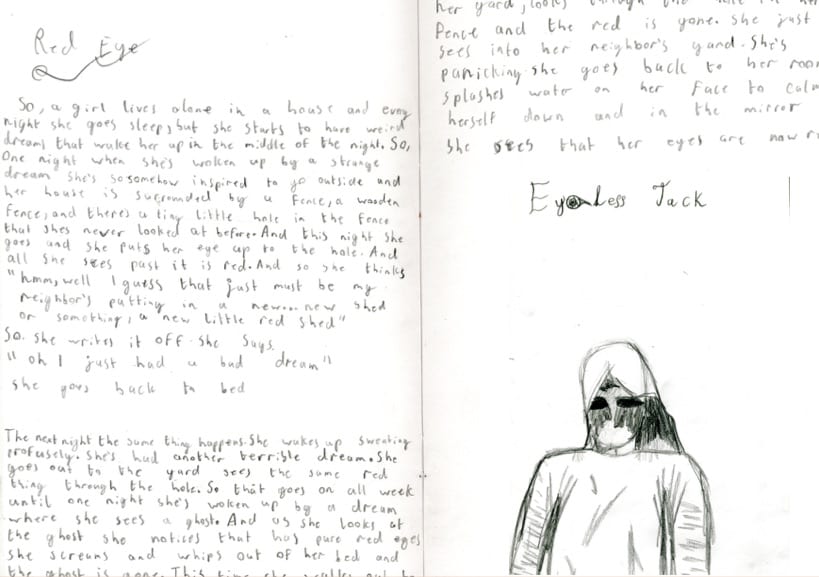 Red Eye
So, a girl lives alone in a house and every
night she goes sleep, but she starts to have weird
dreams that wake her up in the middle of the night. So,
One night when she's woken up by a strange
dream she's so somehow inspired to go outside and
her house is surrounded by a fence, a wooden
fence, and there's a tiny little hole in the fence
that shes never looked at before. And this night she
goes and she puts her eye up to the hole. And
all she sees past it is red. And so she thinks
"hmm, well I guess that just must be my
neighbor's putting in a new... new shed
or something, a new little red shed"
So. she writes it off. She says.
"oh I just had a bad dream"
she goes back to bed
The next night the same thing happens. She wakes up sweating
profusely. She's had another terrible dream. She
goes out to the yard sees the same red
thing through the hole. So that goes on all week
until one night she's woken up by a dream
where she sees a ghost. And as she looks at
the ghost she notices that has pure red eyes
she screams and whips out of her bed and
the ghost is gone. This time she
her yard, looks through
fence and the red is gone. She just
sees into her neighbor's yard. She's
panicking. she goes back to her room
splashes water on her face to calm
herself down and in the mirror
she sees that her eyes are now
Eyeless Jack